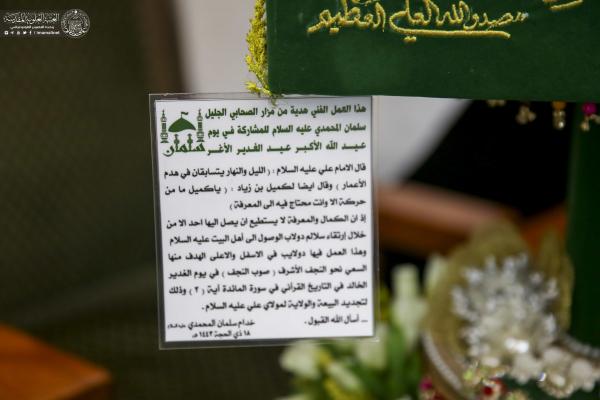 العتبة العلوية المقدسة
imamali.net
صدق الله العلي العظيم
هذا العمل الفني هدية من مزار الصحابي الجليل
سلمان المحمدي عليه السلام للمشاركة في يوم
عيد الله الأكبر عيد الغدير الأغر
سلمان
قال الامام علي عليه السلام : ( الليل والنهار يتسابقان في هدم
الأعمار ) وقال ايضا لكميل بن زياد : ( ياكميل ما من
حركة الا وانت محتاج فيه الى المعرفة )
إذ ان الكمال والمعرفة لا يستطيع ان يصل اليها احد الا من
خلال إرتقاء سلالم دولاب الوصول الى أهل البيت عليه السلام
وهذا العمل فيها دولايب في الاسفل والاعلى الهدف منها
السعي نحو النجف الأشرف ( صوب النجف ) في يوم الغدير
الخالد في التاريخ القرآني في سورة المائدة آية ( ٣ ) وذلك
لتجديد البيعة والولاية لمولاي علي عليه السلام .
... أسأل الله القبول .
خدام سلمان المحمدي
١٨ ذي الحجة ١٤٤٣ هـ